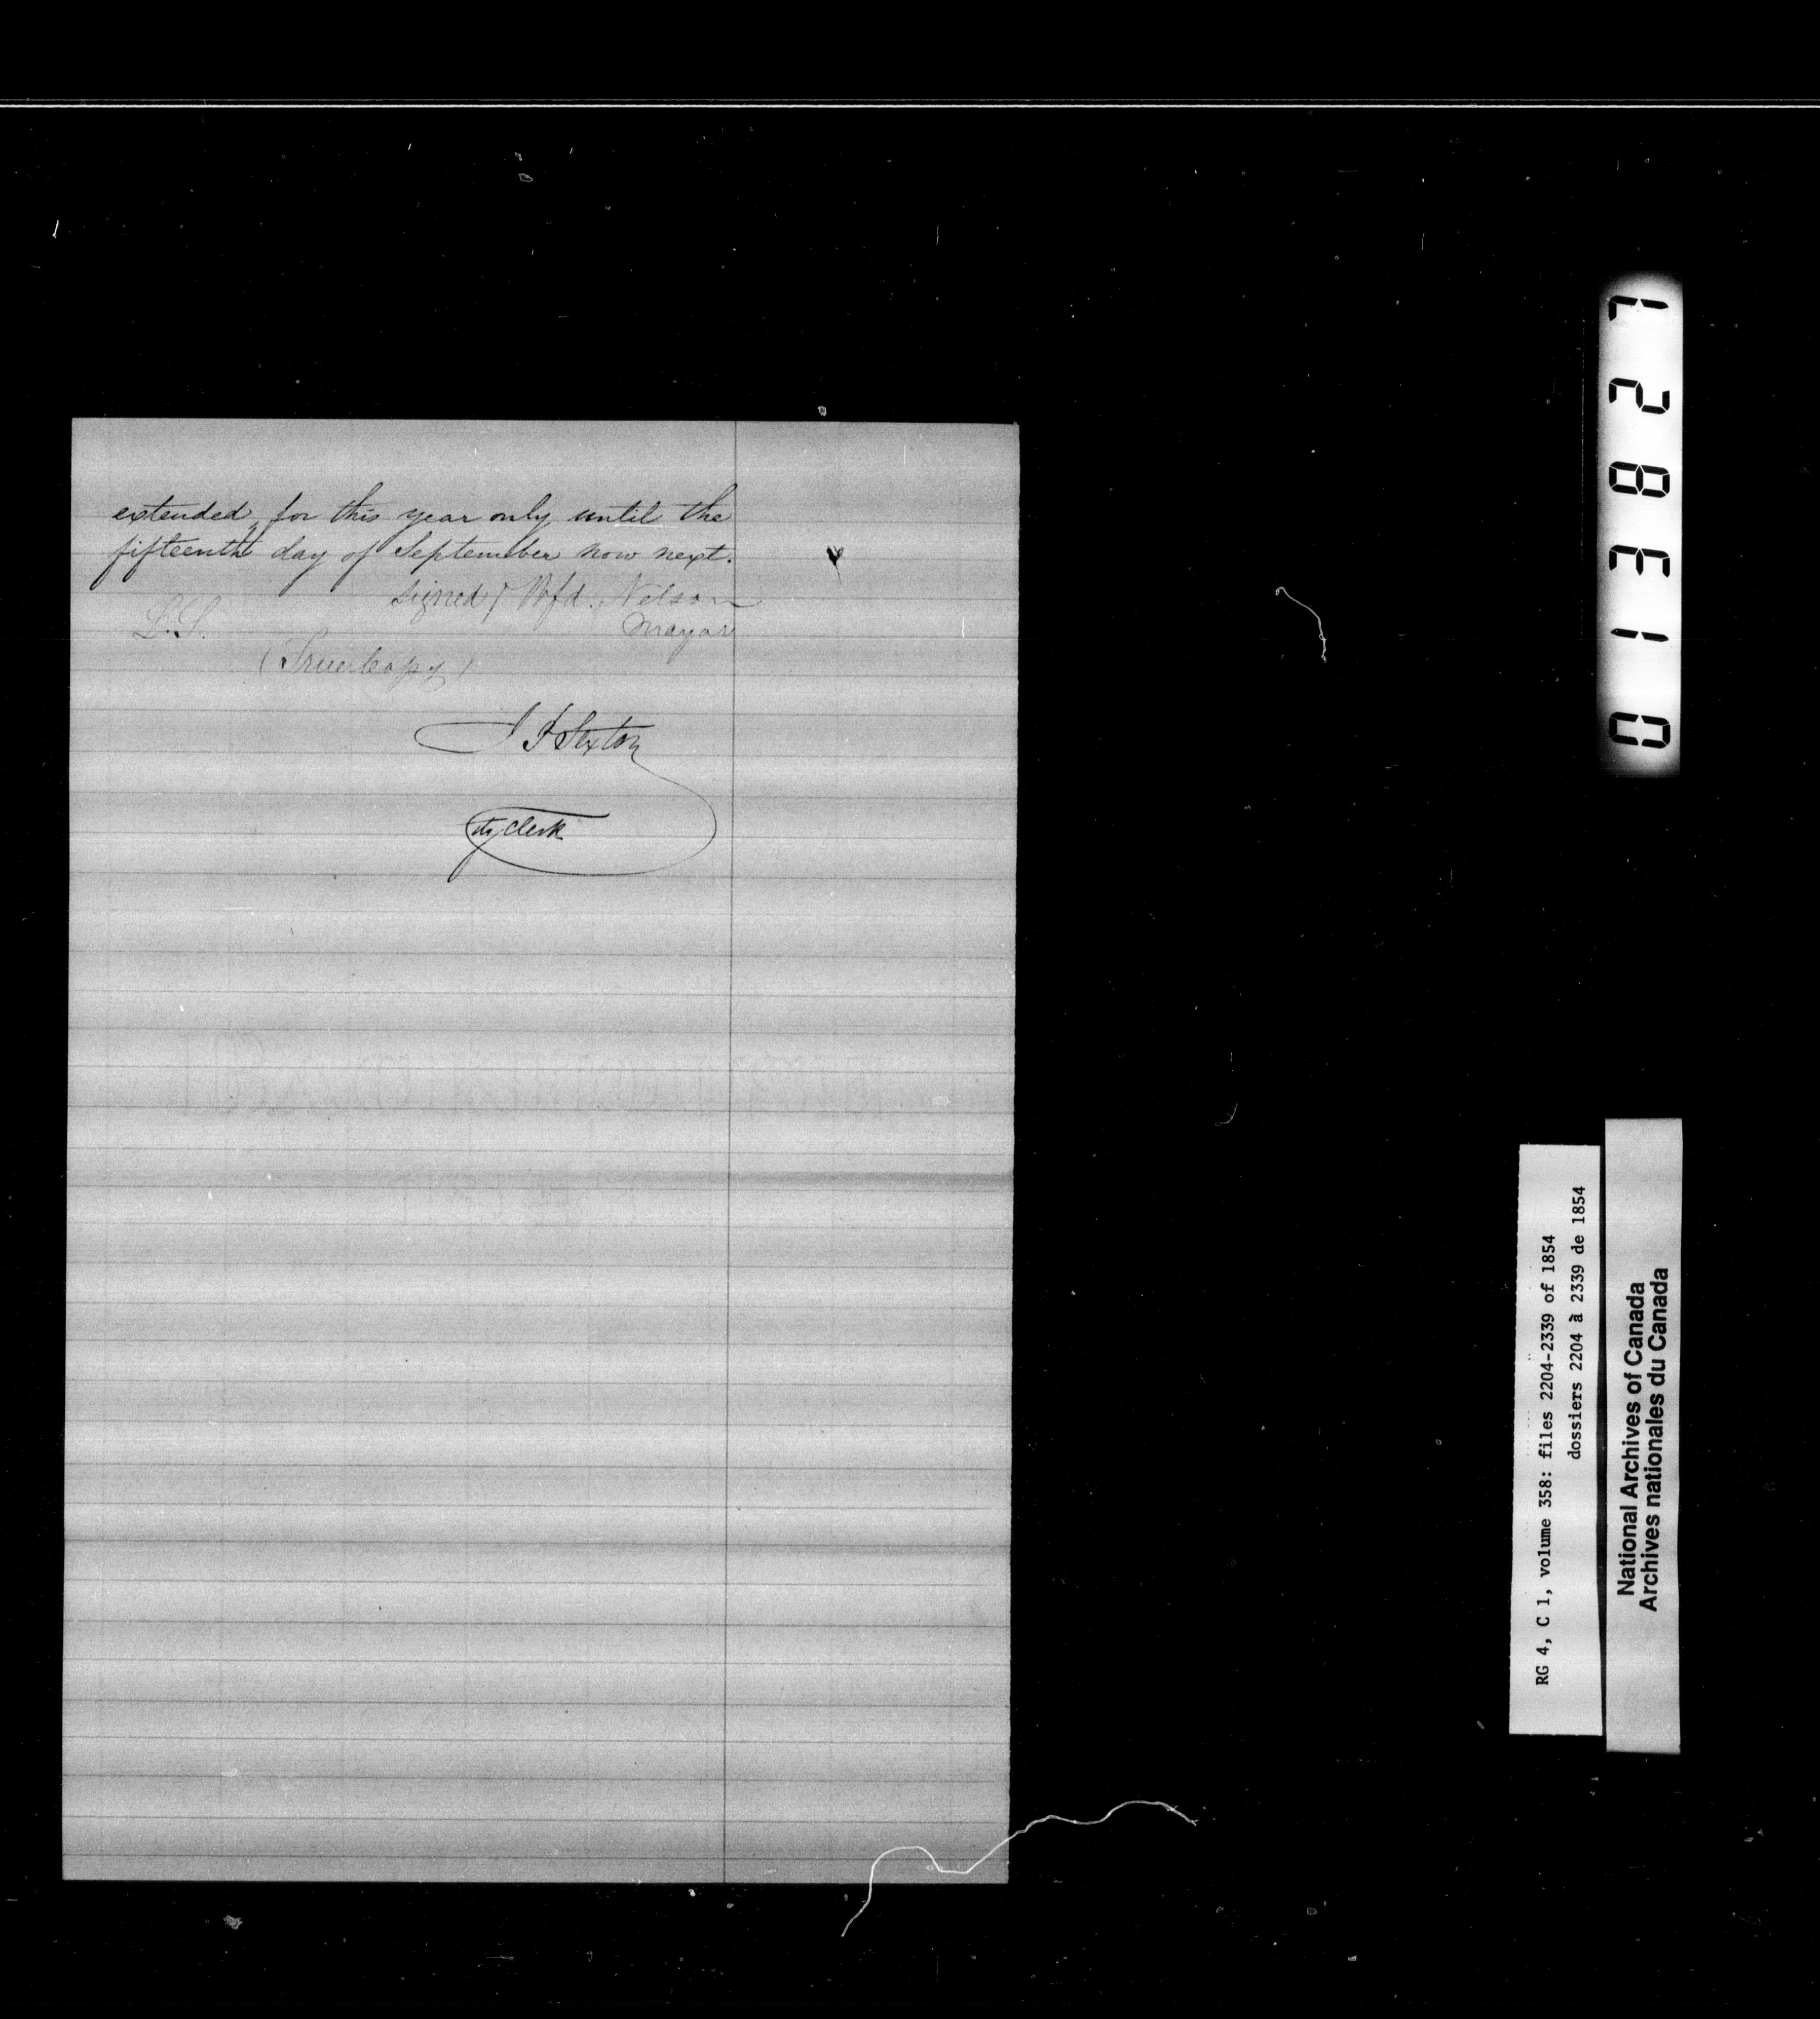 extended, for this year only until the
fifteenth day of September now next.
signed / Wfd. Nelson
Mayor
L.S.
(True Copy)
J P Sexton
City Clerk
013827
RG 4, C 1, volume 358: files 2204-2339 of 1854
dossiers 2204 à 2339 de 1854
National Archives of Canada
Archives nationales du Canada